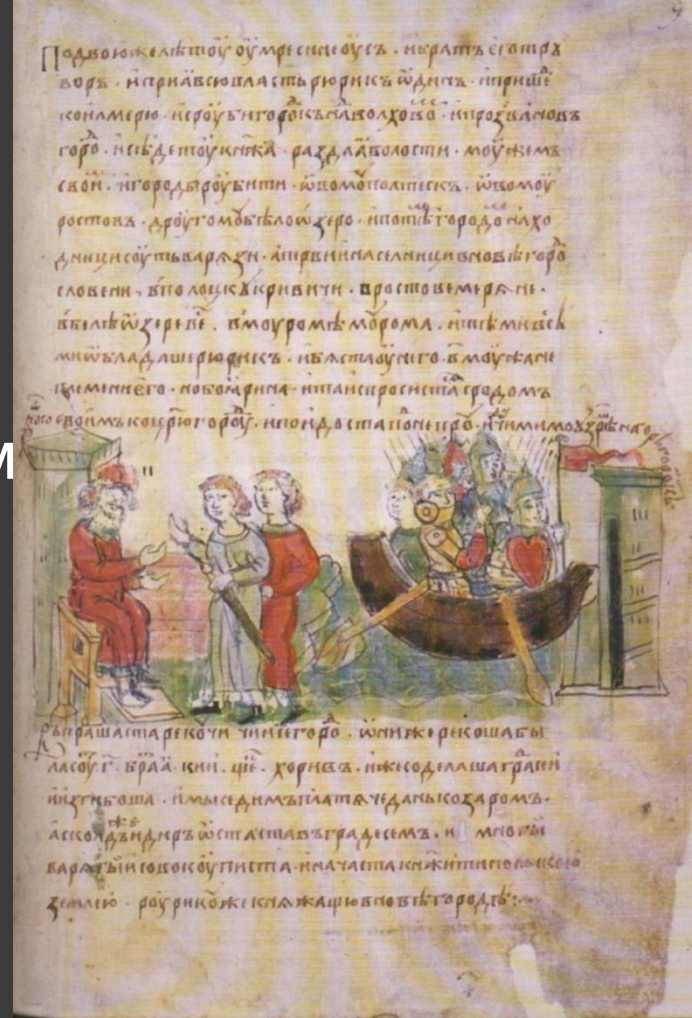 Подвоюжелѣтоу оумресинеоусъ · ибратъеготрꙋ
воръ · ипрїѧвсювластьрюрикъѡдинъ · иприше
коилмерю · исроубигоро́къна́волховѡ · ипрозванов
горо · исѣдетоукнѧжа · раздаꙗволости · моужемъ
свои · игородыроубити · ѡвомоуполтескъ · ѡвомоу
ростовъ · дроугомоубѣлоѡзеро · ипотѣмъгородомънахо
дницисоутьварѧзи · апервиинаселницивновѣгоро
словени · вполоцкꙋкривичи · вростовемерѧне ·
вбелѣѡзеревесь · вмоуромѣмоурома · итѣмивсѣ
миѡбладашерюрикъ · ибѧстаоунего · вмоужане
племениего · нобоꙗрина · итаиспросистасѧ
своимъ · ипоидостаподнепроу · идꙋчимимоузрѣстанагорѣгородокъ
въпрашастарекочи чиисегоро · ѡнижерекошабы
ласоуть · г҃ · братьꙗ · кии · щекъ · хоривъ · ижесоделашаградъ
иизгибоша · имыседимъплатѧчеданькозаромъ ·
асколдъидиръѡстаставъградесемъ · и многы
варѧгыисовокоуписта · иначаставладетипольскою
землею · роурикоужекнѧжащювновѣгородѣ :·